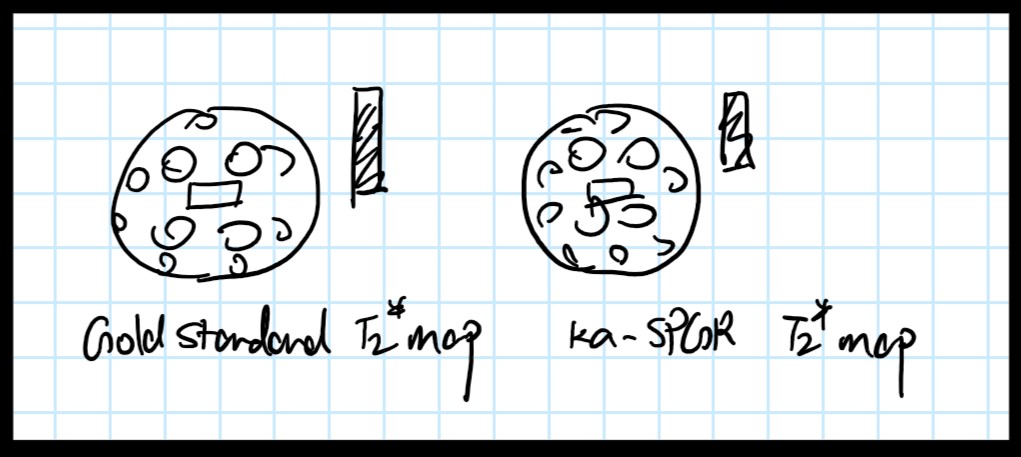 Gold standard T2* map
ka-SPGR T2* map